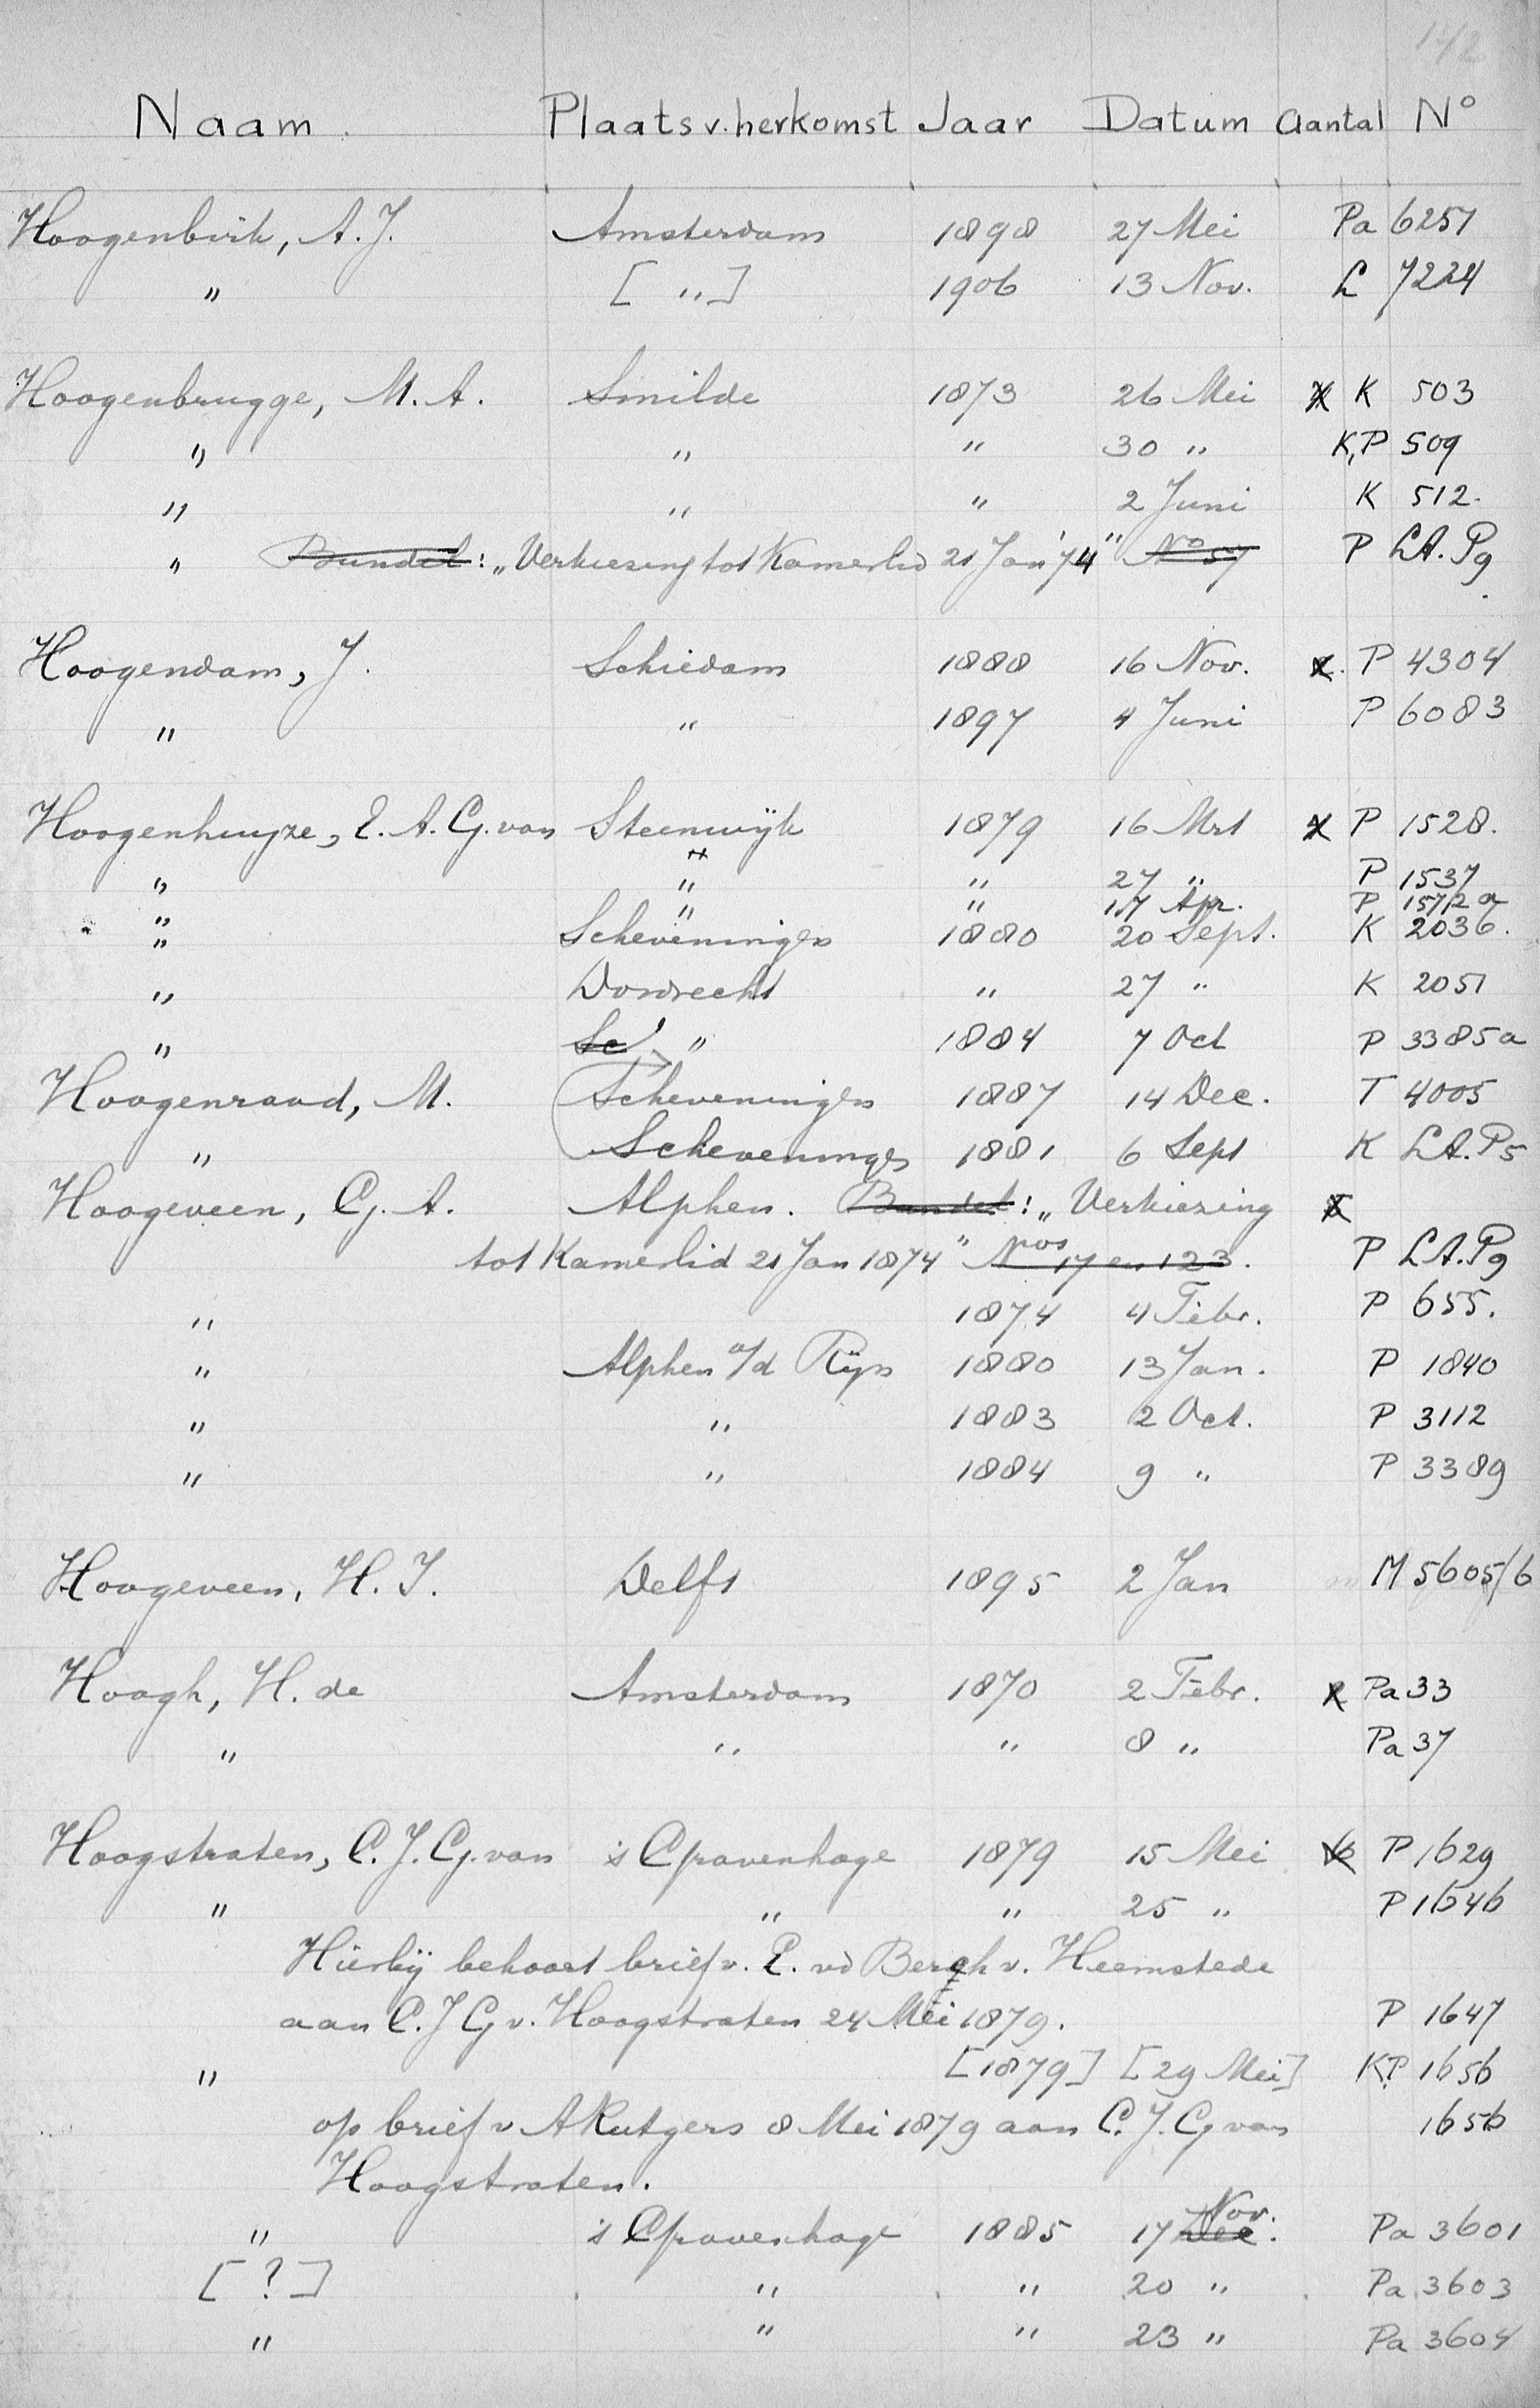 172
Naam. Plaats v. herkomst Jaar Datum Aantal No
Hoogenbirk, A. J. Amsterdam 1898 27 Mei Pa 6251
" [ " ] 1906 13 Nov. L 7224
Hoogenbrugge, M. A. Smilde 1873 26 Mei K 503
" " " 30 " K,P 509
" " " 2 Juni K 512.
" Bundel: „Verkiezing tot Kamerlid 21 Jan '74" No 57 P LA. Pg.
Hoogendam, J. Schiedam 1888 16 Nov. x. P 4304
" " 1897 4 Juni P 6083
Hoogenhuyze, E. A. G. van Steenwijk 1879 16 Mrt P 1528.
" " " 27 " P 1537
" " " 17 Apr. P 1572 a
" Scheveningen 1880 20 Sept. K 2036.
" Dordrecht " 27 " K 2051
" Sc " 1884 7 Oct P 3385a
Hoogenraad, M. Scheveningen 1887 14 Dec. T 4005
" Scheveningen 1881 6 Sept K LA. P5
Hoogeveen, G. A. Alphen. Bundel: „Verkiezing
tot Kamerlid 21 Jan 1874" Nos 17 en 123. P LA. Pg
" 1874 4 Febr. P 655.
" Alphen a/d Rijn 1880 13 Jan. P 1840
" " 1883 2 Oct. P 3112
" " 1884 9 " P 3389
Hoogeveen, H. J. Delft 1895 2 Jan M 5605/6
Hoogh, H. de Amsterdam 1870 2 Febr. Pa 33
" " " 8 " Pa 37
Hoogstraten, C. J. G. van 's Gravenhage 1879 15 Mei P 1629
" " " 25 " P 1646
Hierbij behoort brief v. P. vd Bergh v. Heemstede
aan C. J G v. Hoogstraten 24 Mei 1879. P 1647
" [1879] [29 Mei] KP 1656
op brief v A Rutgers 8 Mei 1879 aan C. J. G van 1656
Hoogstraten.
" 's Gravenhage 1885 17 Dec. Nov. Pa 3601
[ ? ] " " 20 " Pa 3603
" " " 23 " Pa 3604